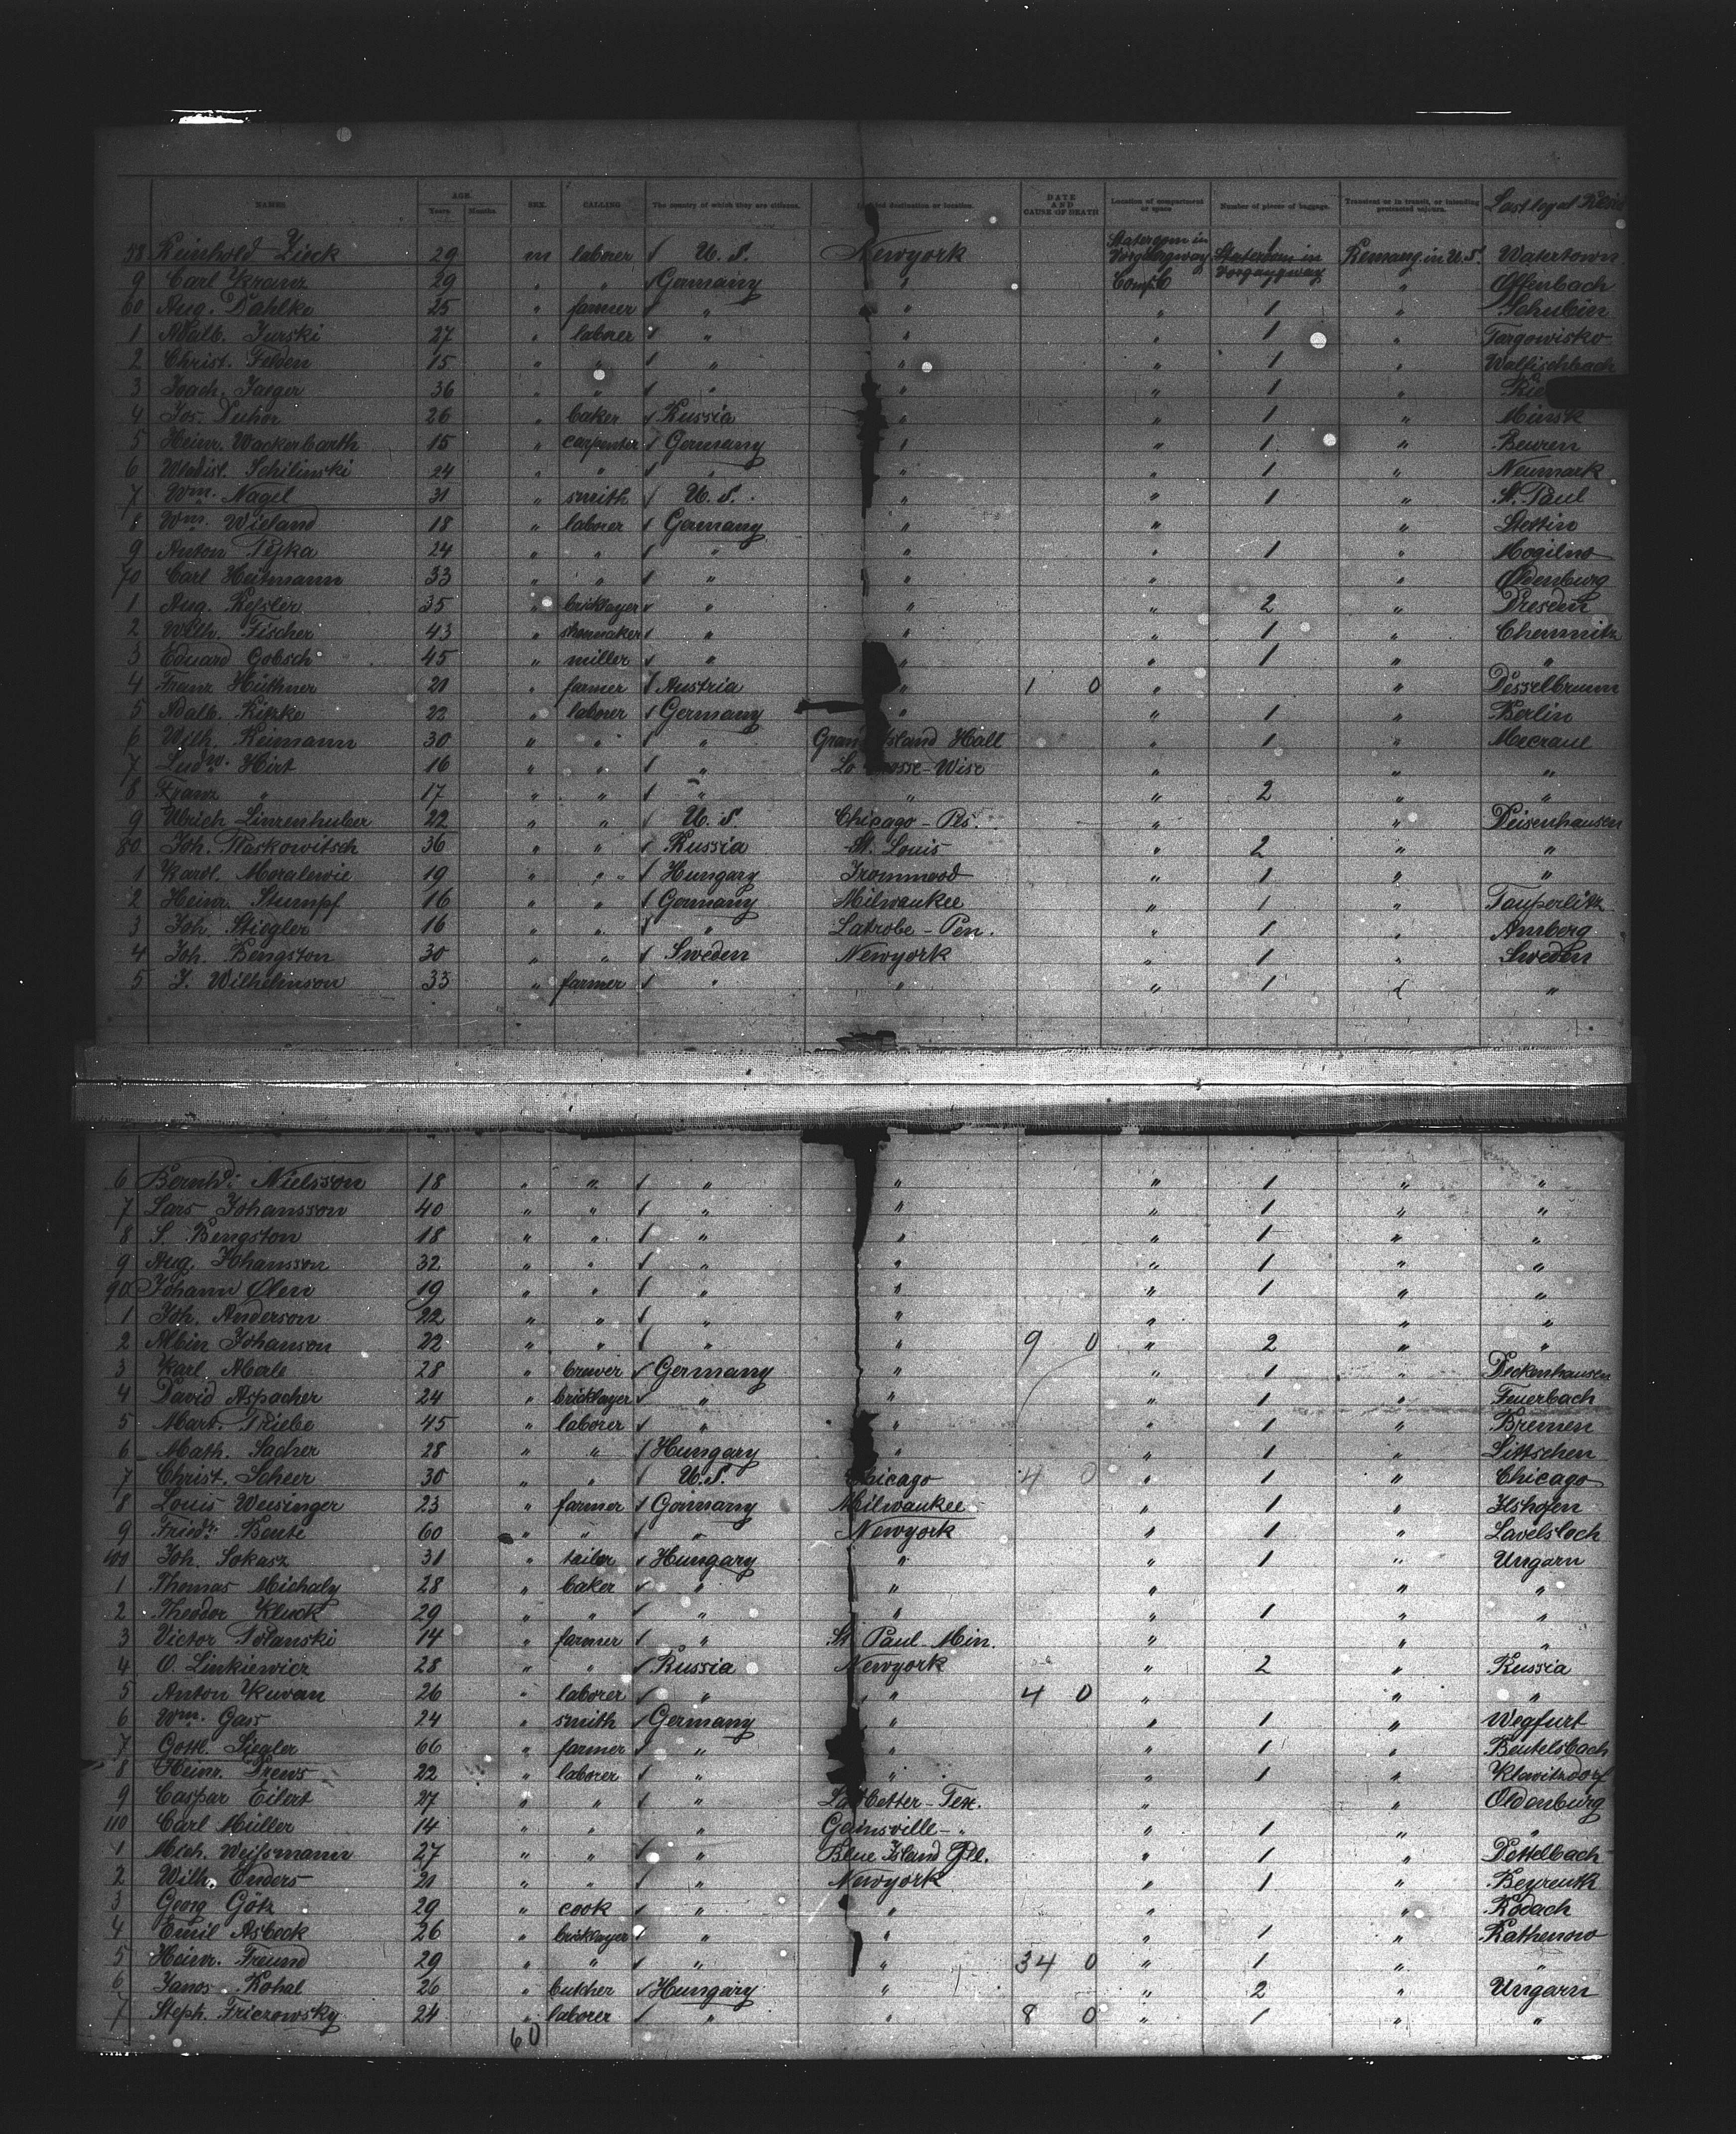 NAMES AGE. Years Months SEX. CALLING The country of which they are citizens. Intended destination or location. DATE AND CAUSE OF DEATH Location of compartment or space Number of pieces of baggage. Transient or in transit, or intending protracted sojourn. Last legal
58 Reinhold Zieck 29 m laborer / U. S. Newyork Stateroom in Vorgangway 1 Stateroom in Vorgangway Remang. in U. S. Watertown
9 Carl Kranz 29 " " / Germany " Comp. C " Offenbach
60 Aug. Dahlke 25 " farmer / " " " 1 " Schubin
1 Adalb. Jurski 27 " laborer / " " 1 " Targowisko
2 Christ. Felden 15 " " / " " " 1 " Walfischbach
3 Joach. Jaeger 36 " " / " " " 1 "
4 Jos. Duhor 26 " baker / Russia " " 1 " Minsk
5 Heinr. Wackerbarth 15 " carpenter / Germany " " 1 " Beuren
6 Wladist. Schilinski 24 " " / " " " 1 " Neumark
7 Wm. Nagel 31 " smith / U. S. " " 1 " St. Paul
8 Wm. Wieland 18 " laborer / Germany " " " Stettin
9 Anton Pejka 24 " " / " " " 1 " Mogilno
70 Carl Heitmann 33 " " / " " " " Oldenburg
1 Aug. Kessler 35 " bricklayer / " " " 2 " Dresden
2 Wilh. Fischer 43 " shoemaker / " " 1 " Chemnitz
3 Eduard Gobsch 45 " miller / " " " 1 " "
4 Franz Hüthner 21 " farmer / Austria " 1 0 " " Desselbrunn
5 Adalb. Kitzke 22 " laborer / Germany " " 1 " Berlin
6 Wilh. Reimann 30 " " / " Grand Island Hall " 1 " Mecraul
7 Ludw. Hirt 16 " " / " La Crosse - Wisc " " "
8 Franz " 17 " " / " " " 2 " "
9 Ulrich Linzenhuber 22 " " / U. S Chicago - Ps. " " Deisenhausen
80 Joh. Plaskowitsch 36 " " / Russia St. Louis " 2 " "
1 Karol. Moralewie 19 " " / Hungary Ironnwood " 1 " "
2 Heinr. Stumpf 16 " " / Germany Milwaukee " 1 " Tauperlitz
3 Joh. Stiegler 16 " " / " Latrobe - Pen. " 1 " Amberg
4 Joh. Bengston 30 " " / Sweden Newyork " 1 " Sweden
5 J. Wilhelmson 33 " farmer / " " " 1 " "
6 Bernhd. Nielsson 18 " " / " " " 1 " "
7 Lars Johansson 40 " " / " " " 1 " "
8 S. Bengston 18 " " / " " " 1 " "
9 Aug. Johansson 32 " " / " " " 1 " "
90 Johann Olen 19 " " / " " " 1 " "
1 Joh. Anderson 22 " " / " " " " "
2 Albin Johanson 22 " " / " " 9 0 " 2 " "
3 Karl Aberle 28 " brewer / Germany " " 1 " Deckenhausen
4 David Aspacher 24 " bricklayer / " " " 1 " Feuerbach
5 Mart. Triebe 45 " laborer / " " " 1 " Bremen
6 Math. Sacher 28 " " / Hungary " " 1 " Littschen
7 Christ. Scheer 30 " " / U. S. Chicago 4 0 " 1 " Chicago
8 Louis Weisinger 23 " farmer / Germany Milwaukee " 1 " Ilshofen
9 Friedr. Bente 60 " " / " Newyork " 1 " Lavelsloch
100 Joh. Sokasz 31 " tailor / Hungary " " 1 " Ungarn
1 Thomas Michaly 28 " baker / " " " " "
2 Theodor Kluck 29 " " / " " " 1 " "
3 Victor Polanski 14 " farmer / " St. Paul - Min. " " "
4 O. Linkiewicz 28 " " / Russia Newyork " 2 " Russia
5 Anton Kuvan 26 " laborer / " " 4 0 " " "
6 Wm. Gass 24 " smith / Germany " " 1 " Wegfurt
7 Gottl. Siegler 66 " farmer / " " " 1 " Beutelsbach
8 Heinr. Drews 22 " laborer / " " " 1 " Klawitzdorf
9 Caspar Eilert 27 " " / " Ledbetter - Tex. " " Oldenburg
110 Carl Müller 14 " " / " Gainsville - " " 1 " "
1 Mich. Weissmann 27 " " / " Blue Island Ill. " 1 " Dettelbach
2 Wilh. Enders 21 " " / " Newyork " 1 " Beyreuth
3 Georg Götz 29 " cook / " " " " Rodach
4 Emil Asbeck 26 " bricklayer / " " " 1 " Rathenow
5 Heinr. Freund 29 " " / " " 34 0 " 1 " "
6 Janos Kohal 26 " butcher / Hungary " " 2 " Ungarn
7 Steph. Friczowsky 24 " laborer / " " 8 0 " 1 " "
60